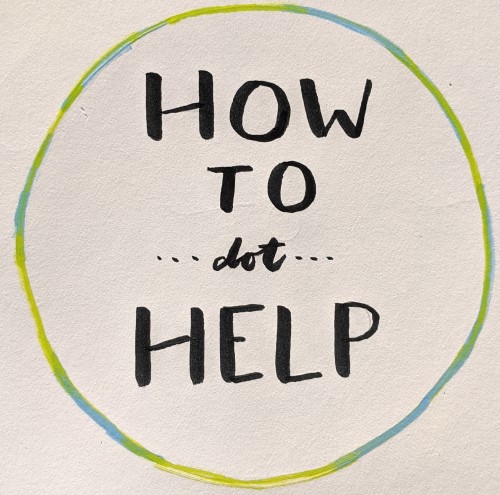 HOW
TO
...dot...
HELP